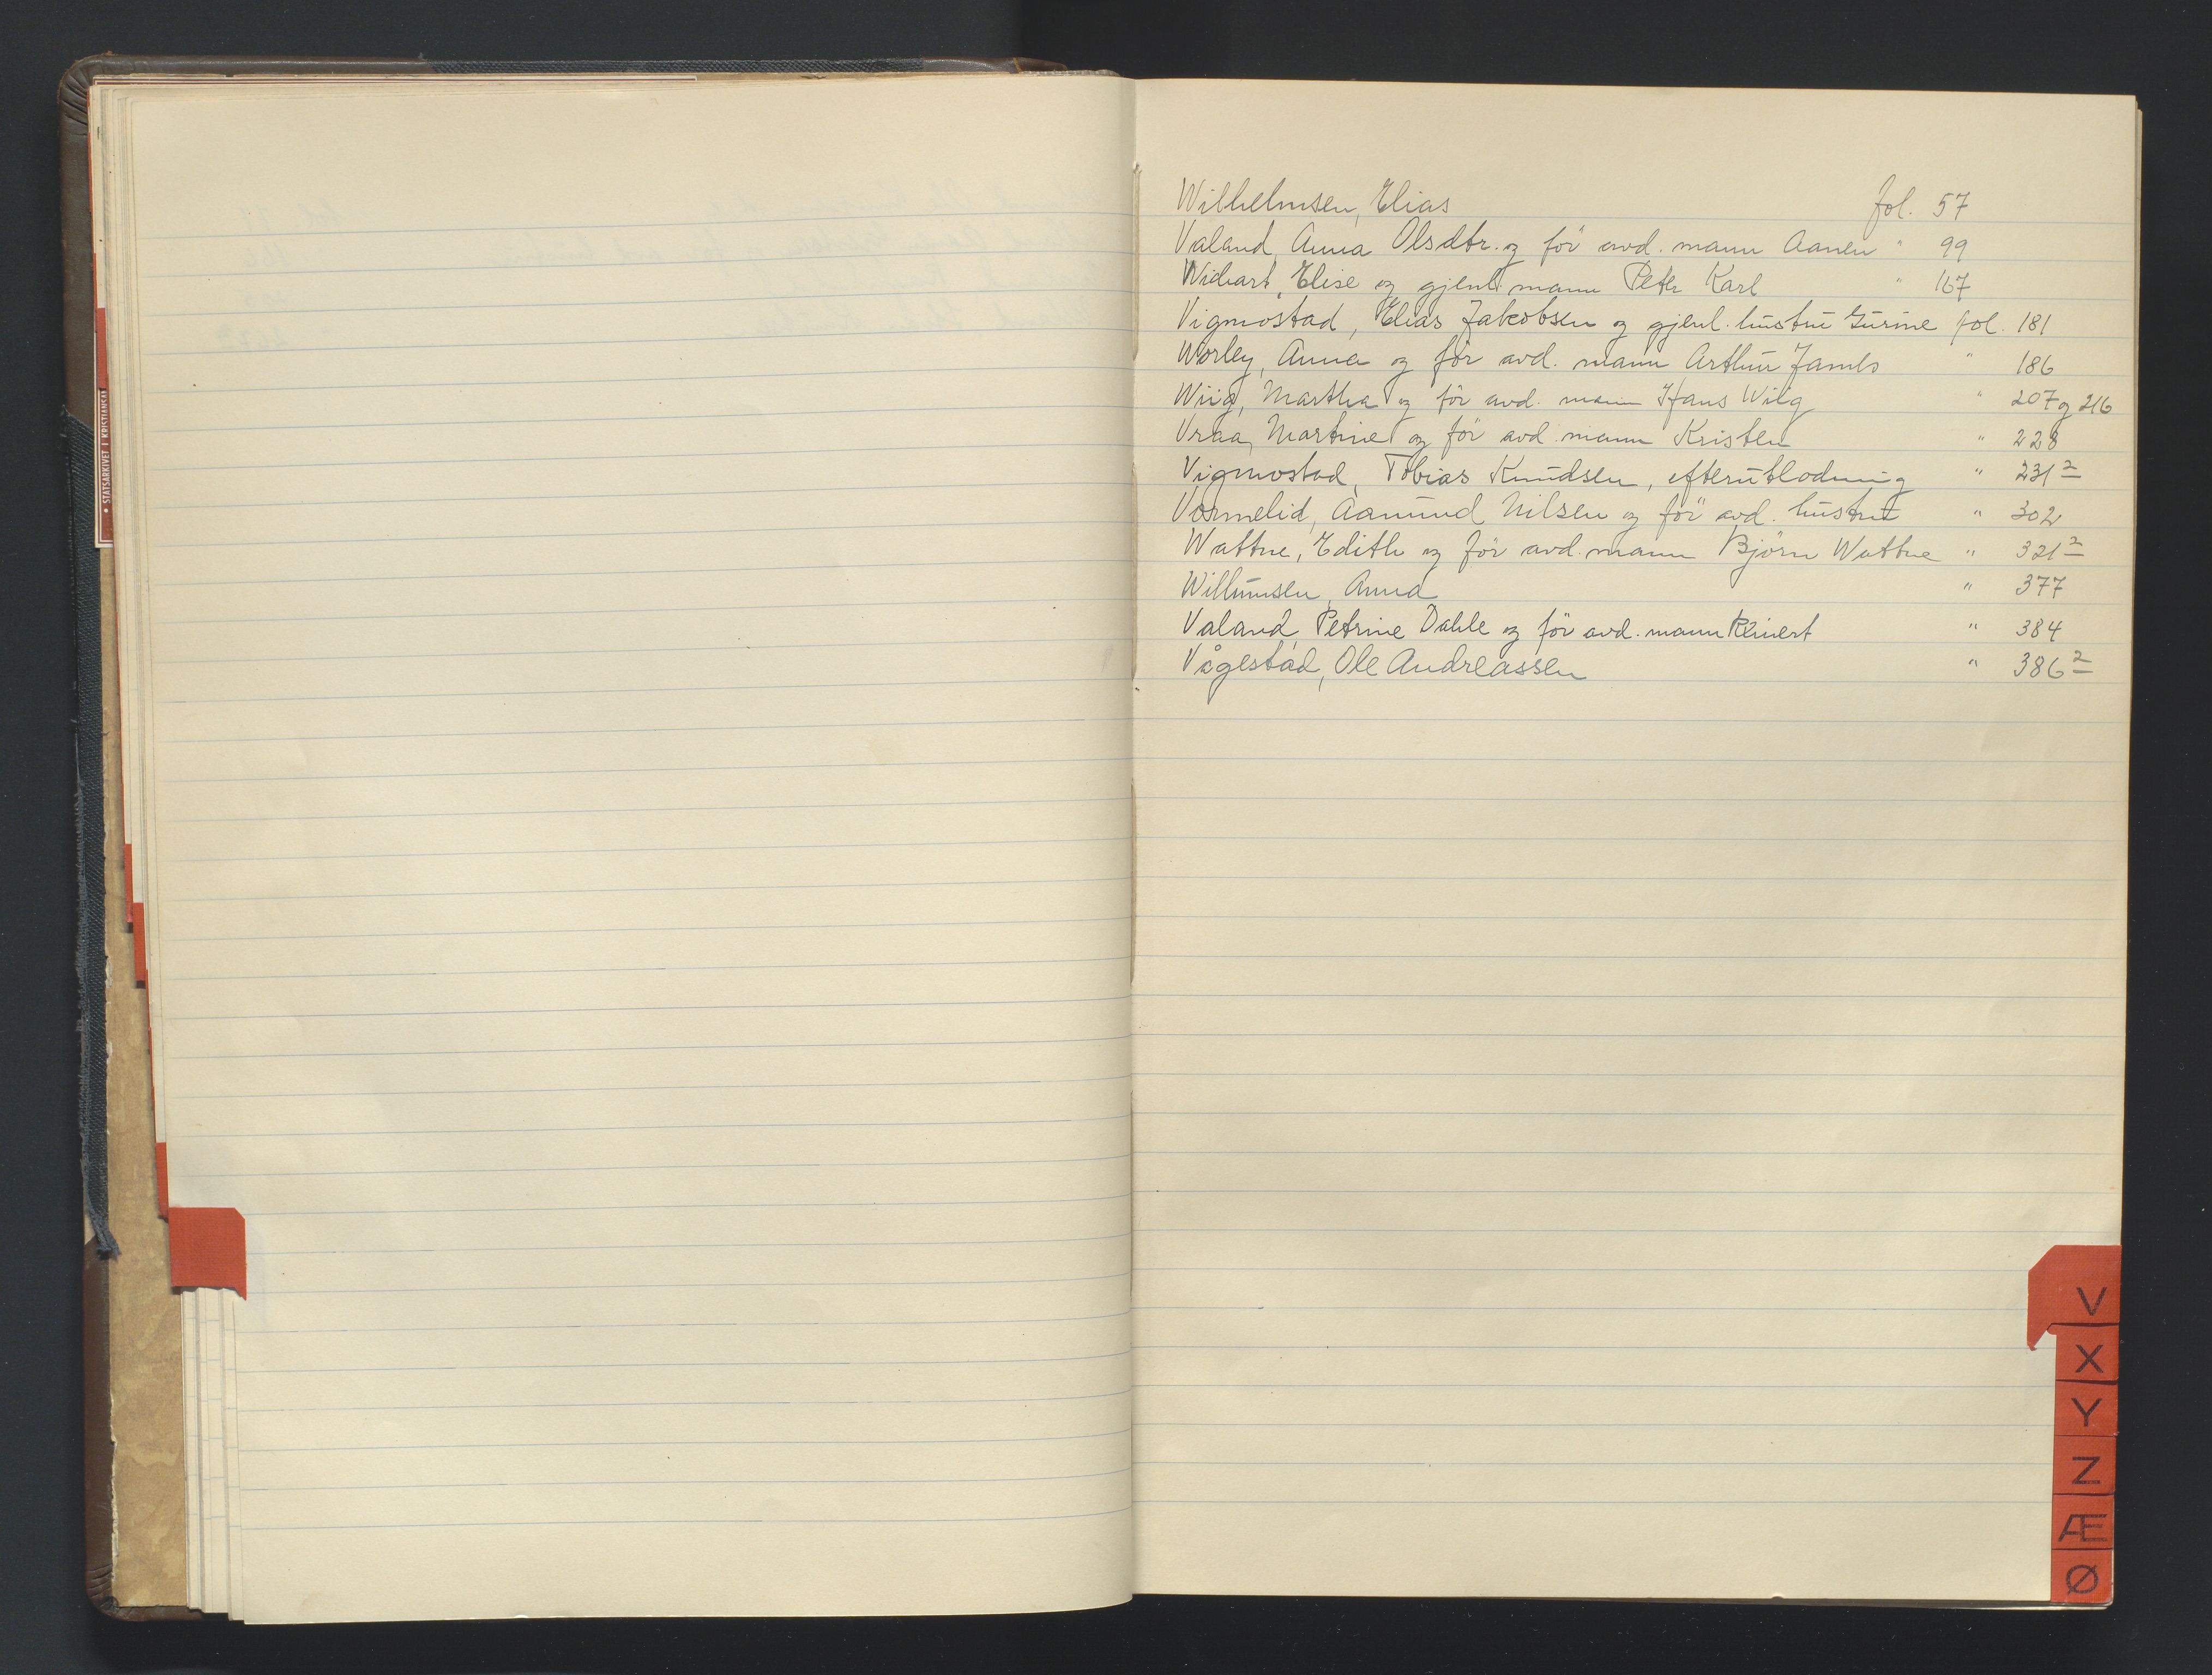 • STATSARKIVET I KRISTIANSAND
Wilhelmsen, Elias fol. 57
Valand, Anna Olsdtr. og för avd. mann Aanen " 99
Widvart, Elise og gjenl. mann Peter Karl " 167
Vigmostad, Elias Jakobsen og gjenl. hustru Gurine fol. 181
Worley, Anna og för avd. mann Arthur James " 186
Wiig, Martha og för avd. mann Hans Wiig " 207 og 216
Vraa, Martine og för avd. mann Kristen " 228
Vigmostad, Tobias Knudsen, efterutlodning " 231 2
Vormelid, Aamund Nilsen og för avd. hustru " 302
Wattne, Edith og för avd. mann Björn Wattne " 321 2
Willumsen, Anna " 377
Valand, Petrine Dahle og för avd. mann Reinert " 384
Vågestad, Ole Andreassen " 386 2
V
X
Y
Z
Æ
Ø